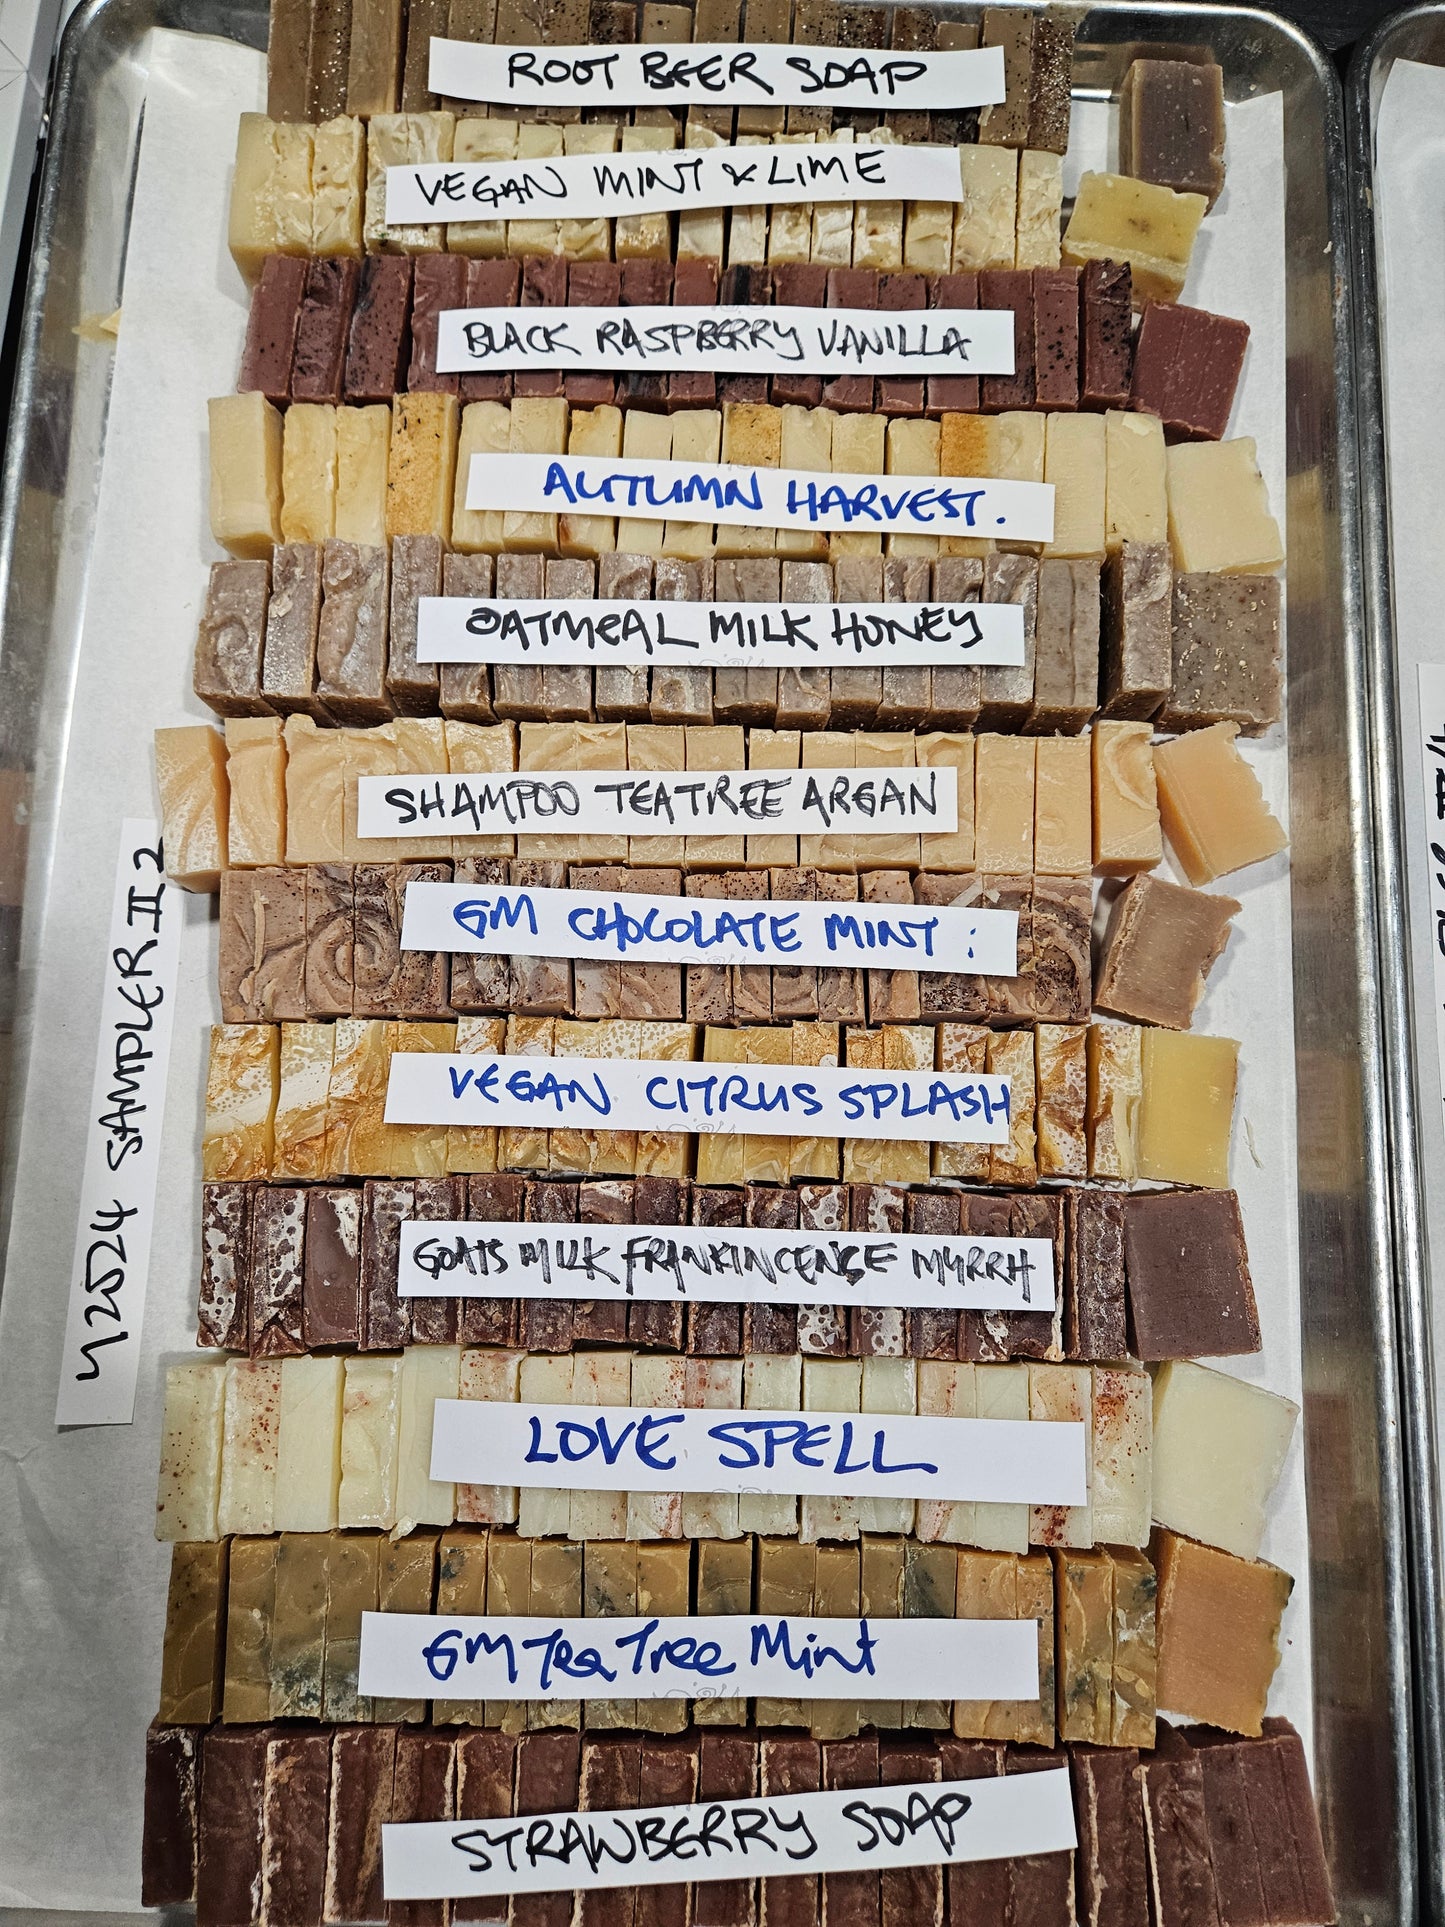 ROOT BEER SOAP
VEGAN MINT & LIME
BLACK RASPBERRY VANILLA
AUTUMN HARVEST.
OATMEAL MILK HONEY
SHAMPOO TEATREE ARGAN
GM CHOCOLATE MINT :
VEGAN CITRUS SPLASH
GOATS MILK FRANKINCENSE MYRRH
LOVE SPELL
GM Tea Tree Mint
STRAWBERRY SOAP
42524 SAMPLER II 2